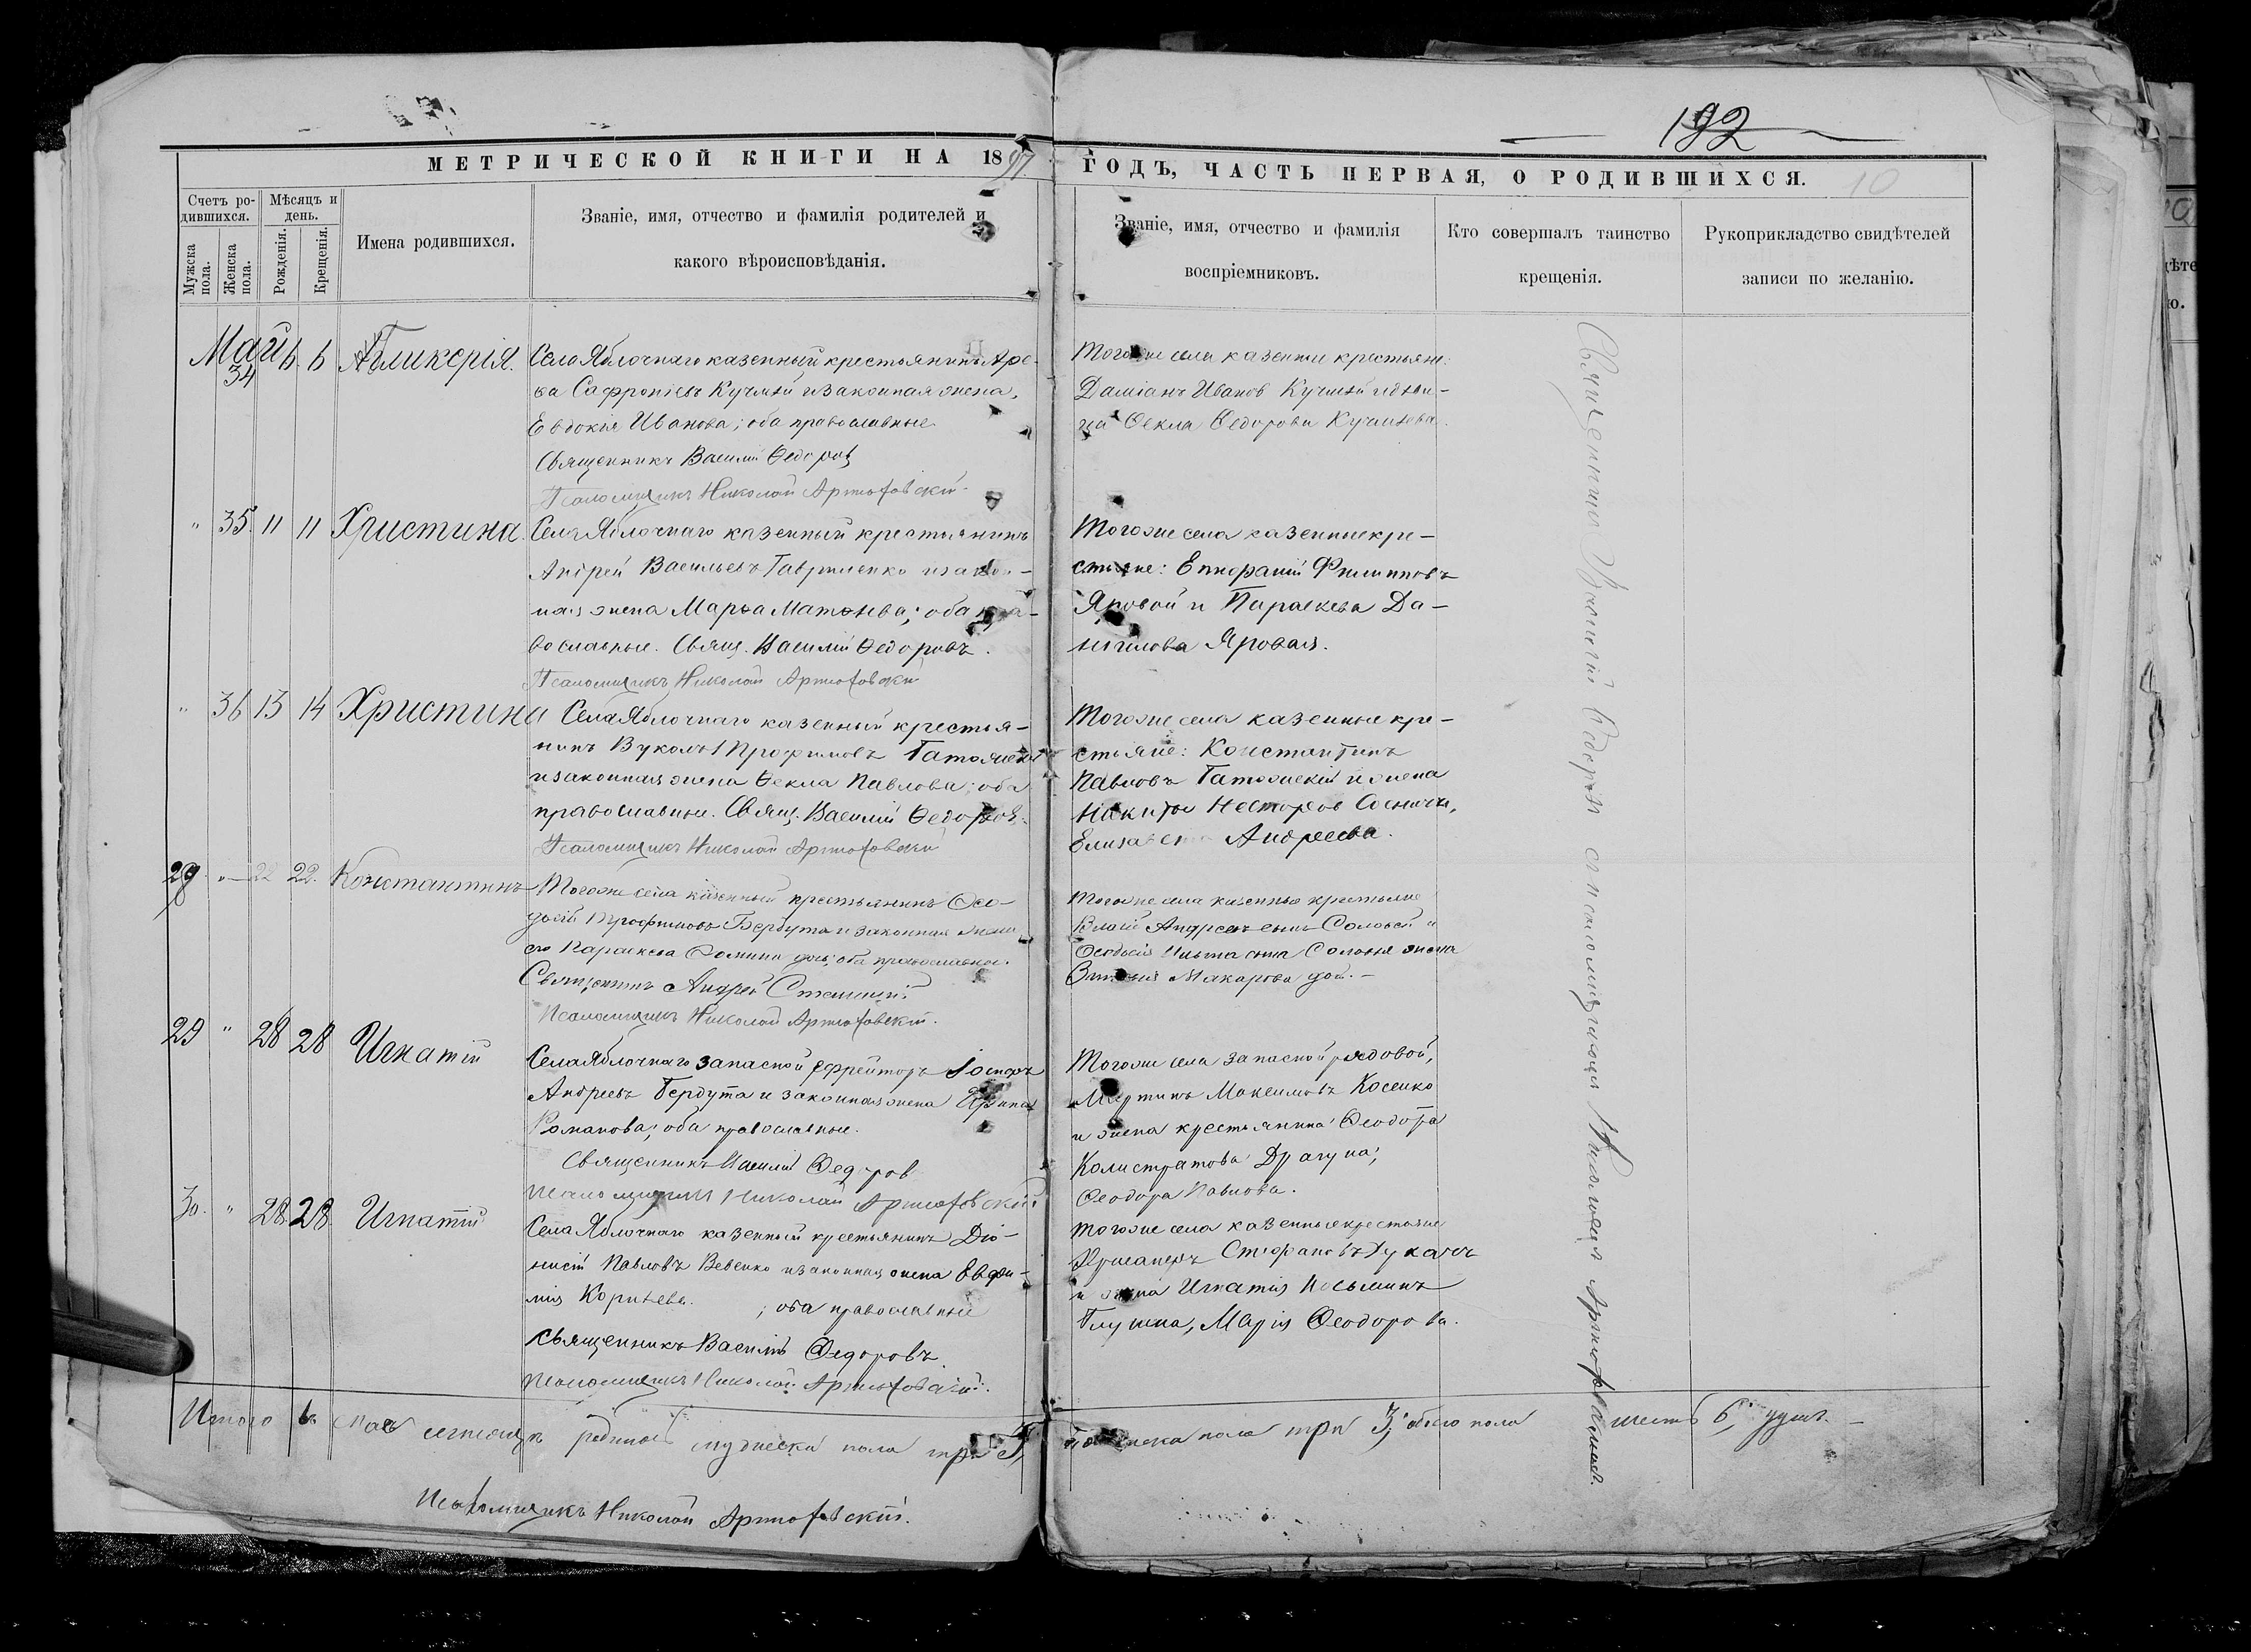 192
МЕТРИЧЕСКОЙ КНИГИ НА 1897
ГОДЪ, ЧАСТЬ ПЕРВАЯ, О РОДИВШИХСЯ.
10
Счетъ ро-
дившихся.
Мѣсяцъ и
день.
Мужска
пола.
Женска
пола.
Рожденія.
Крещенія.
Имена родившихся.
Званіе, имя, отчество и фамилія родителей и
какого вѣроисповѣданія.
Званіе, имя, отчество и фамилія
воспріемниковъ.
Кто совершалъ таинство
крещенія.
Рукоприкладство свидѣтелей
записи по желанію.
Май
34 6 6 Гликерія.
Села Яблочнаго казенный крестьянинъ Аре-
ѳа Сафроніевъ и законная жена,
Евдокія Иванова; оба православные
Священникъ Василій Ѳедоровъ
Псаломщикъ Николай Артюховскій
Тогоже села казенные крестьяне:
Даміанъ Иванов
Ѳекла Ѳедорова
" 35 11 11 Христина.
Села Яблочнаго казенный крестьянинъ
Андрей Васильевъ Гавриленко и закон-
ная жена Марѳа Матѳѣева; оба пра-
вославные. Свящ. Василій Ѳедоровъ.
Псаломщикъ Николай Артюховскій
Тогоже села казенные кре-
стьяне: Филипповъ
Яровой и Параскева Да-
ніилова Яровая.
" 36 13 14 Христина
Села Яблочнаго казенный крестья-
нинъ Вуколъ Трофимовъ
и законная жена Ѳекла Павлова; оба
православные. Свящ. Василій Ѳедоровъ.
Псаломщикъ Николай Артюховскій
Тогоже села казенные кре-
стьяне: Константинъ
Павловъ и жена
Никиты Несторова
Елизавета Андреева.
28 " 22 22. Константинъ
Тогоже села казенный крестьянинъ Ѳео-
досій Трофимовъ Бердута и законная жена
его Параскева Ѳомина дочь; оба православные.
Священникъ Андрей
Псаломщикъ Николай Артюховскій.
Тогоже села казенные крестьяне
Власій Андреевъ сынъ Соловей и
Соловья жена
Макарова доч. –
29 " 28 28 Игнатій
Села Яблочнаго запасной ефрейторъ Іосифъ
Андреевъ Бердута и законная жена Ирина
Романова; оба православные.
Священникъ Василій Ѳедоров
Псаломщикъ Николай Артюховскій.
Тогоже села запасной рядовой,
Мартинъ Максимовъ Косенко
и жена крестьянина Ѳеодота
Калистратова Драгуна;
Ѳеодора Павлова.
30. " 28. 28. Игнатій
Села Яблочнаго казенный крестьянинъ Діо-
нисій Павловъ Вевенко и законная жена Евѳи-
мія Корнѣева. ; оба православные
Священникъ Василій Ѳедоровъ
Псаломщикъ Николай Артюховскій.
Тогоже села казенные крестьяне
Стефановъ
и жена Игнатія
Марія Ѳеодорова.
Священникъ Василій Ѳедоровъ съ псаломщикомъ Николаемъ Артюховскимъ.
Итого въ маѣ мѣсяцѣ родилось мужеска пола три 3,
женска пола три 3, обоего пола шесть 6, душъ. –
Псаломщикъ Николай Артюховскій.